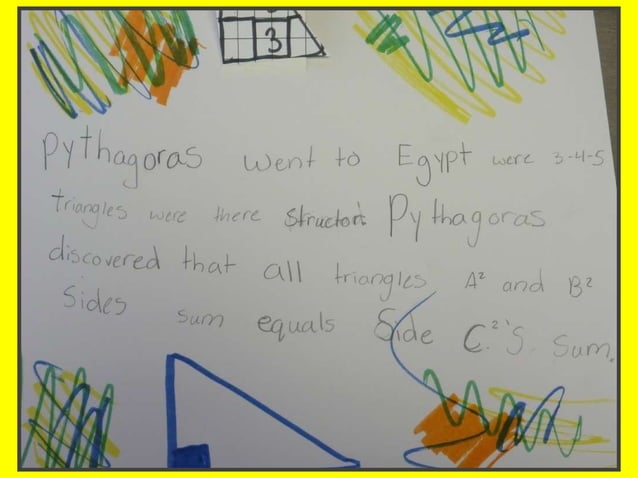 3
Pythagoras went to Egypt were 3-4-5
triangles were there Pythagoras
discovered that all triangles A² and B²
Sides sum equals Side C.²'s. Sum.